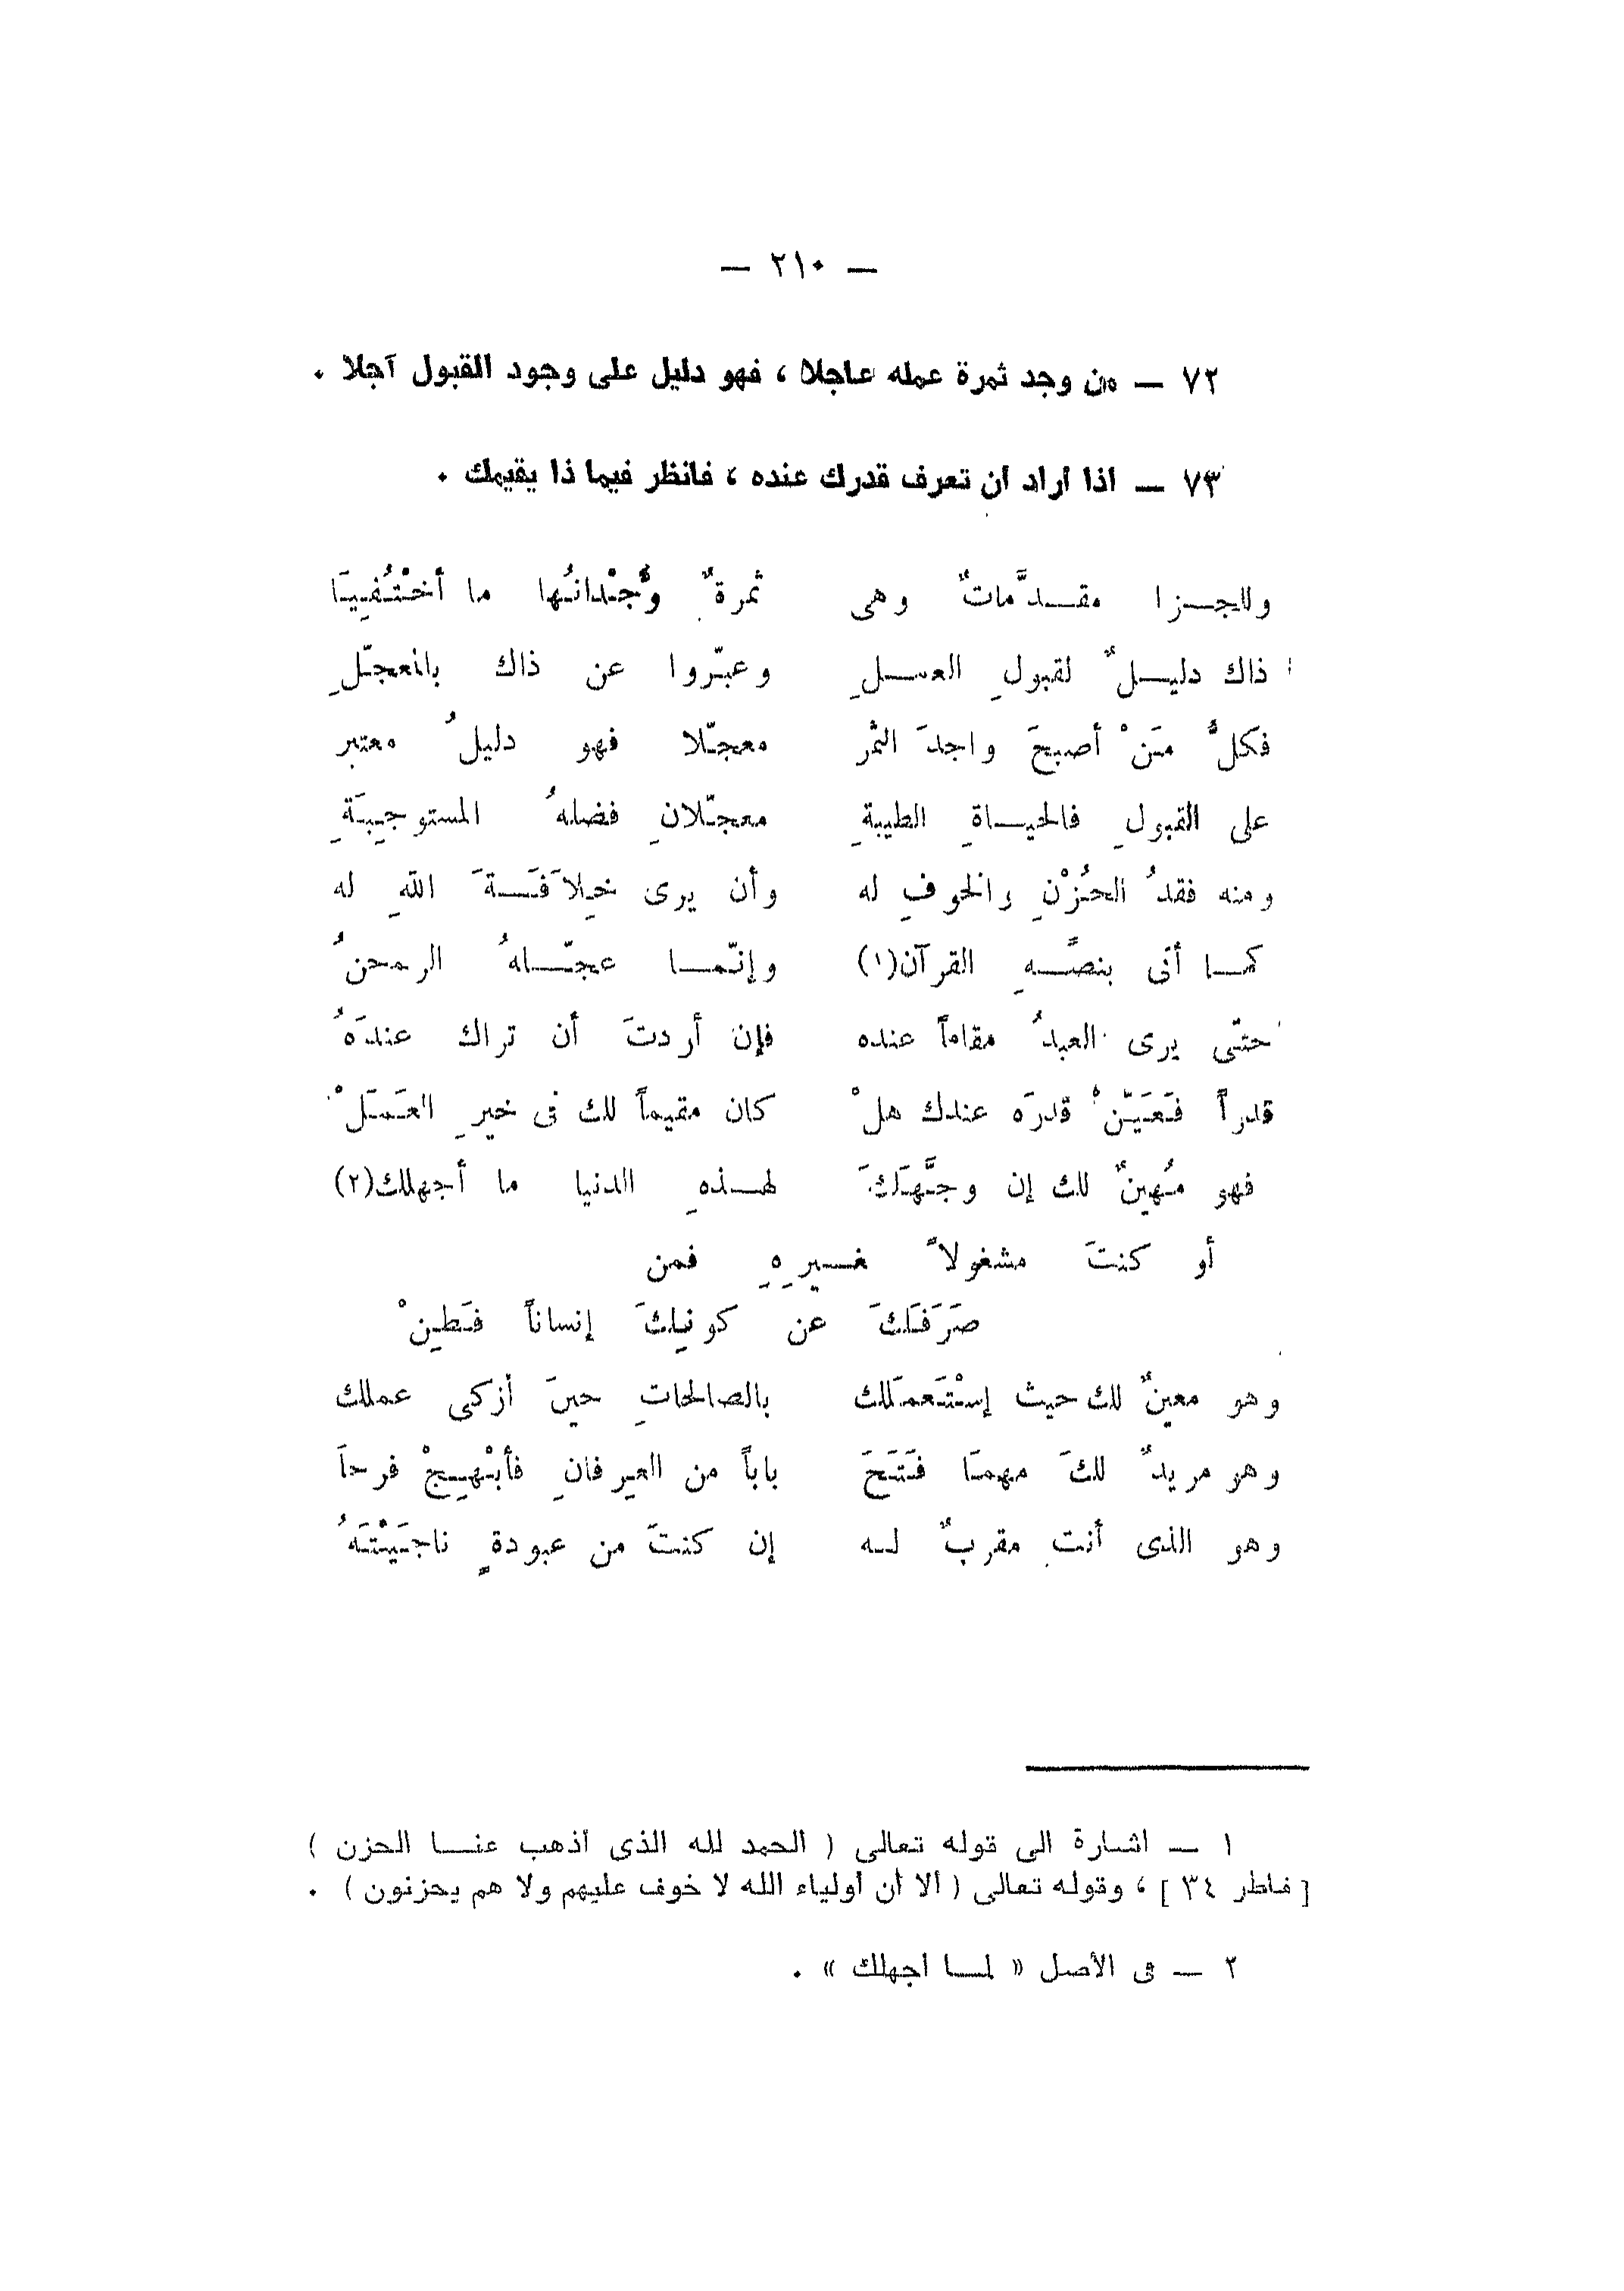 — ٢١٠ —
٧٢ — من وجد ثمرة عمله عاجلا ، فهو دليل على وجود القبول آجلا .
٧٣ — اذا اراد ان تعرف قدرك عنده ، فانظر فيما ذا يقيمك .
وللجـزا مقـدَّماتٌ وهى ثمرةٌ وُجْدانُها ما أخْتُفِيَا
ذاك دليـلٌ لقبولِ العمـلِ وعبّروا عن ذاك بالمعجّلِ
فكلُّ مَنْ أصبحَ واجدَ الثمر معجّلا فهو دليلُ معتبر
على القبولِ فالحيـاةِ الطيبةِ معجّلانِ فضلهُ المستوجِبَةِ
ومنه فقدُ الحُزْنِ والخوفِ له وأن يرى خِلاَفَـةَ اللهِ له
كمـا أتى بنصّـهِ القرآن(١) وإنّمـا عجّـلهُ الرحمنُ
حتّى يرى العبدُ مقاماً عنده فإن أردتَ أن تراك عندَهُ
قدراً فَعَيّنْ قدرَه عندك هلْ كان مقيماً لك فى خيرِ العَمَلْ
فهو مُهينٌ لك إن وجَّهَكَ لهـذهِ الدنيا ما أجهلك(٢)
أو كنتَ مشغولاً غـيرِهِ فمن
صَرَفَكَ عن كونِكَ إنساناً فَطِنْ
وهو معينٌ لك حيث إسْتَعمَلك بالصالحاتِ حينَ أزكى عملك
وهو مريدٌ لكَ مهمَا فَتَحَ باباً من العِرفانِ فأبْهِجْ فرحاَ
وهو الذى أنت مقربٌ لـه إن كنتَ من عبودةٍ ناجَيْتَهُ
١ — اشارة الى قوله تعالى ( الحمد لله الذى أذهب عنـا الحزن )
[ فاطر ٣٤ ] ، وقوله تعالى ( ألا أن أولياء الله لا خوف عليهم ولا هم يحزنون ) .
٢ — فى الأصل « لمـا أجهلك » .